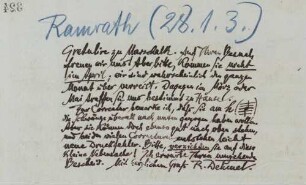 Ramrath (28.1.3.)
zu Auf Ihren Besuch
freuen wir uns! Aber bitte, kommen Sie nicht
im April; wir sind wahrscheinlich den ganzen
Monat über verreist. Dagegen im März oder
Mai treffen Sie uns bestimmt zu Hause.
Zur Correctur bemerke ich, daß Sie am
überall nach unten gezogen haben
Aber Sie können doch ebenso gut nach oben
und bei der vielen Correctur entstehen leicht
neue Druckfehler. Bitte, verzeihen Sie auf diese
kleine Ich erwarte Ihren umgehenden
Bescheid. Mit herzlichem Gruß R. Dehmel.